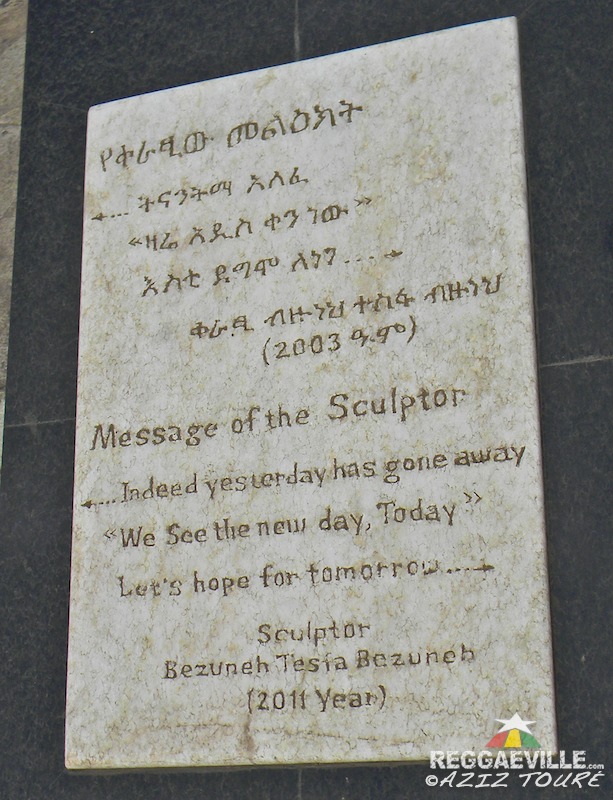 የቀራፂው መልዕክት
←... ትናንትማ አለፈ
«ዛሬ አዲስ ቀን ነው»
እስቲ ደግሞ ለነገ ...→
ቀራፂ ብዙነህ ተስፋ ብዙነህ
(2003 ዓ.ም)
Message of the Sculptor
←...Indeed yesterday has gone away
«We See the new day, Today»
Let's hope for tomorrow...→
Sculptor
Bezuneh Tesfa Bezuneh
(2011 Year)
REGGAEVILLE.com
©AZIZ TOURÉ